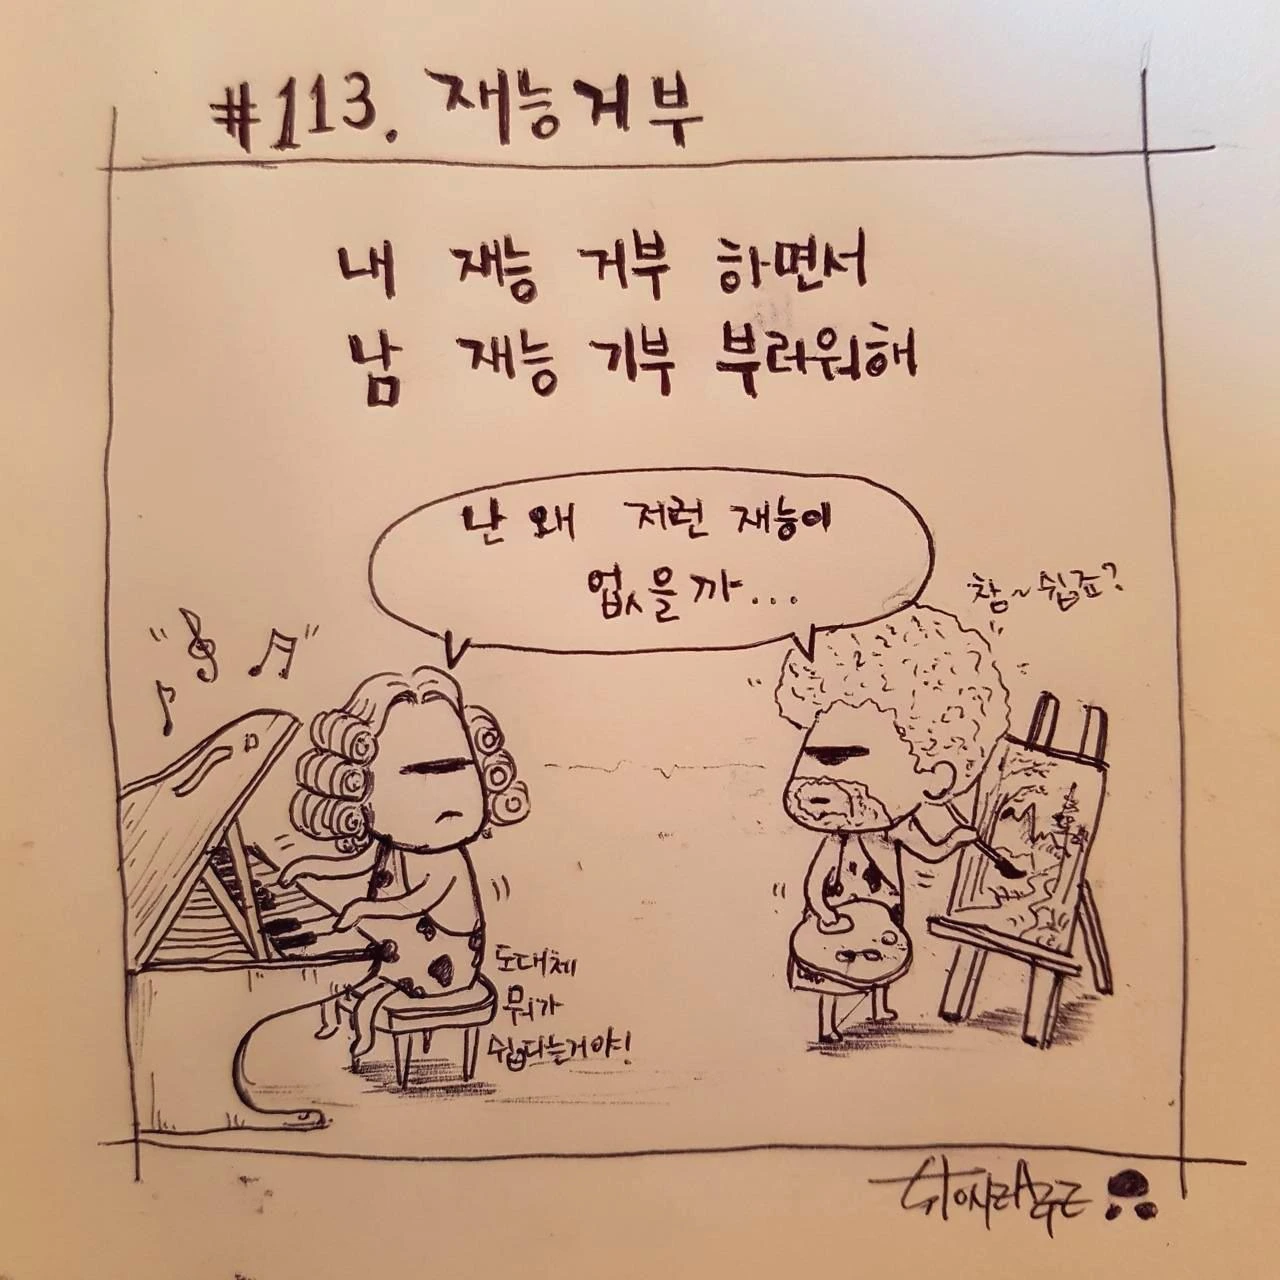 #113. 재능거부
내 재능 거부 하면서
남 재능 기부 부러워해
난 왜 저런 재능이
없을까...
참~쉽죠?
도대체
뭐가
쉽다는거야!
StONEAGE